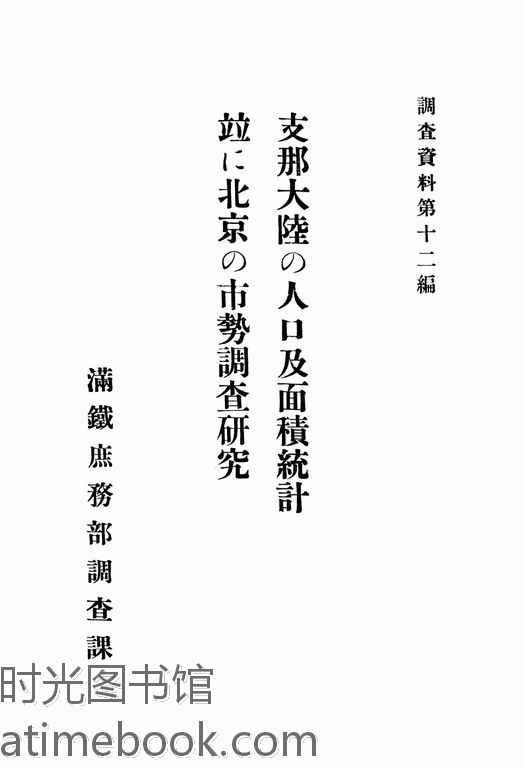 調査資料第十二編
支那大陸の人口及面積統計
竝に北京の市勢調査研究
滿鐵庶務部調査課
时光图书馆
atimebook.com